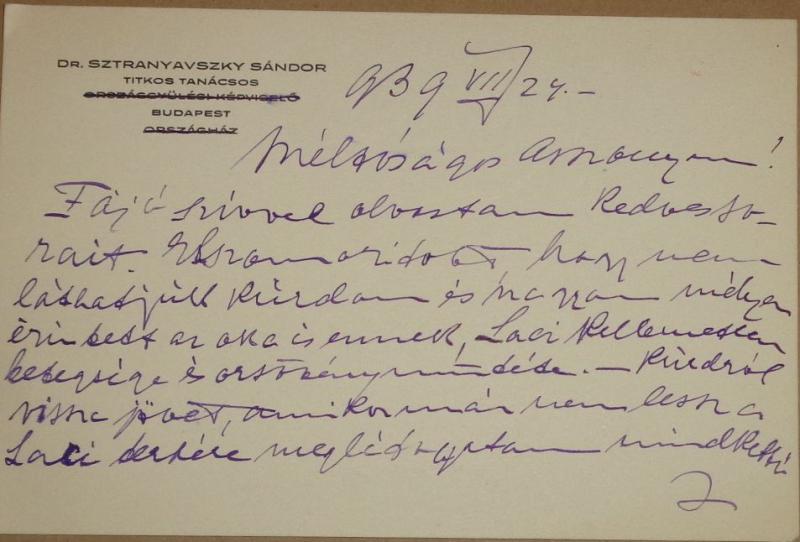 DR. SZTRANYAVSZKY SÁNDOR
TITKOS TANÁCSOS
ORSZÁGGYÜLÉSI KÉPVISELŐ
BUDAPEST
ORSZÁGHÁZ
939 VII/24.-
Méltóságos Asszonyom!
Fájó szivvel olvastam kedves so-
rait. Elszomoritott, hogy nem
láthatjuk Kürdön és nagyon mélyen
érintett az oka is ennek, Laci kellemetlen
betegsége és
vissza jövet, amikor már nem lesz a
Laci terhére meglátogatom mindkettő